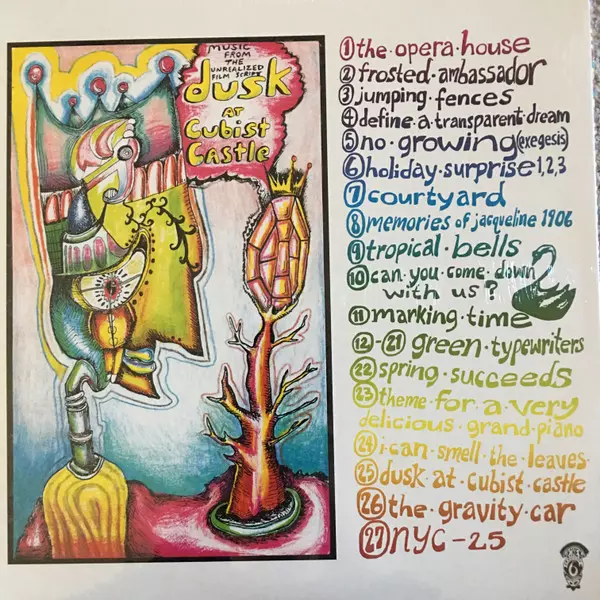 MUSIC
FROM
THE
UNREALIZED
FILM SCRIPT
dusk
AT
Cubist
Castle
1 the·opera·house
2 frosted·ambassador
3 jumping·fences
4 define·a·transparent·dream
5 no·growing (exegesis)
6 holiday·surprise 1,2,3
7 courtyard
8 memories of jacqueline 1906
9 tropical·bells
10 can·you·come·down
with·us?
11 marking·time
12-21 green·typewriters
22 spring·succeeds
23 theme·for·a·very
delicious·grand·piano
24 i·can·smell·the·leaves·
25 dusk·at·cubist·castle
26 the·gravity·car
27 NYC-25
6